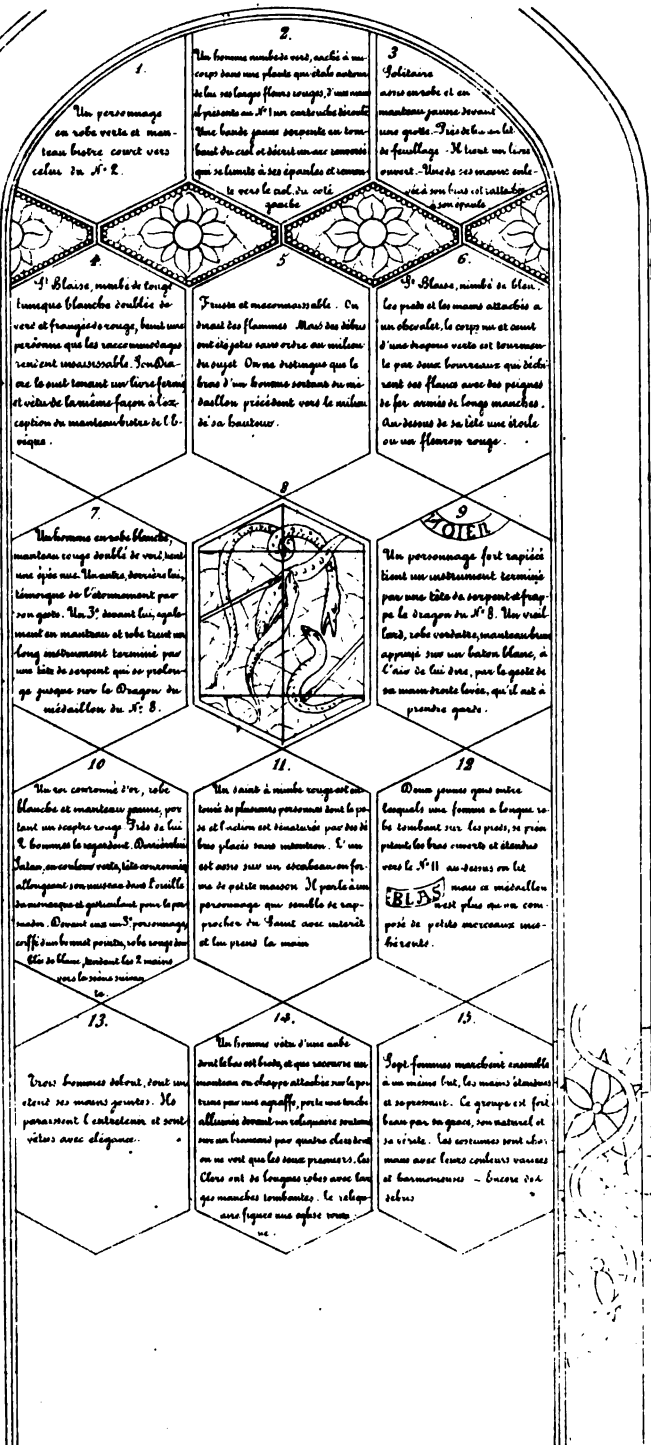 1.
Un personnage
en robe verte et man-
teau bistre court vers
celui du Nº 2.
2.
Un homme nimbé de vert, caché à mi-
corps dans une plante qui étale autour
de lui ses larges fleurs rouges, d'une main
il présente au Nº 1 un cartouche déroulé
Une bande jaune serpente en tom-
bant du ciel et décrit un arc renversé
qui se limite à ses épaules et remon-
te vers le ciel du coté
gauche
3
Solitaire
assis en robe et en
manteau jaune devant
une grotte. Près de lui un lit
de feuillage. Il tient un livre
ouvert. Une de ses mains enle-
vée à son bras est rattachée
à son épaule
4.
St Blaise, nimbé de rouge
tunique blanche doublée de
vert et frangée de rouge, bénit une
personne que les raccommodages
rendent insaisissable. Son Dia-
cre le suit tenant un livre fermé
et vêtu de la même façon à l'ex-
ception du manteau bistre de l'E-
vêque.
5
Fruste et méconnaissable. On
dirait des flammes. Mais des débris
ont été jetés sans ordre au milieu
du sujet On ne distingue que le
bras d'un homme sortant du mé-
daillon précédent vers le milieu
de sa hauteur.
6.
St Blaise, nimbé de bleu,
les pieds et les mains attachés a
un chevalet, le corps nu et ceint
d'une draperie verte est tourmen-
té par deux bourreaux qui déchi-
rent ses flancs avec des peignes
de fer armés de longs manches.
Au-dessus de sa tête une étoile
ou un fleuron rouge.
7.
Un homme en robe blanche,
manteau rouge doublé de vert, tient
une épée nue. Un autre, derrière lui,
témoigne de l'étonnement par
son geste. Un 3e devant lui, égale-
ment en manteau et robe tient un
long instrument terminé par
une tête de serpent qui se prolon-
ge jusque sur le Dragon du
médaillon du Nº 8.
8
9
MOIEN
Un personnage fort rapiécé
tient un instrument terminé
par une tête de serpent et frap-
pe le dragon du Nº 8. Un vieil-
lard, robe verdatre, manteau brun
appuyé sur un baton blanc, à
l'air de lui dire, par le geste de
sa main droite levée, qu'il ait à
prendre garde.
10
Un roi couronné d'or, robe
blanche et manteau jaune, por
tant un sceptre rouge Près de lui
2 hommes le regardent. Derrière lui
Satan, en couleur verte, tête couronnée
allongeant son museau dans l'oreille
du monarque et gesticulant pour le per
suader. Devant eux un 3e personnage,
coiffé d'un bonnet pointu, robe rouge dou
blée de blanc, tendant les 2 mains
vers la scène suivan
te.
11.
Un saint à nimbe rouge est en-
touré de plusieurs personnes dont la po-
se et l'action est dénaturée par des dé
bris placés sans intention. L'un
est assis sur un escabeau en for-
me de petite maison Il parle à un
personnage qui semble se rap-
procher du Saint avec intérêt
et lui prend la main
12
Deux jeunes gens entre
lesquels une femme a longue ro-
be tombant sur les pieds, se préci
pitent les bras ouverts et étendus
vers le Nº 11 au-dessus on lit
:BLAS, mais ce médaillon
n'est plus qu'un com-
posé de petits morceaux inco-
hérents.
13.
Trois hommes debout, dont un
étend ses mains jointes. Ils
paraissent l'entretenir et sont
vêtus avec élégance.
14.
Un homme vêtu d'une aube
dont le bas est brodé, et que recouvre un
manteau ou chappe attachée sur la poi-
trine par une agraffe, porte une torche
allumée devant un reliquaire soutenu
sur un brancard par quatre clercs dont
on ne voit que les deux premiers. Les
Clercs ont de longues robes avec lar
ges manches tombantes. Le reliqu-
aire figure une eglise roma
ne.
15
Sept femmes marchent ensemble
à un même but, les mains étendues
et se pressant. Ce groupe est fort
beau par sa grace, son naturel et
sa vérité. Les costumes sont char
mants avec leurs couleurs variées
et harmonieuses – Encore des
débris